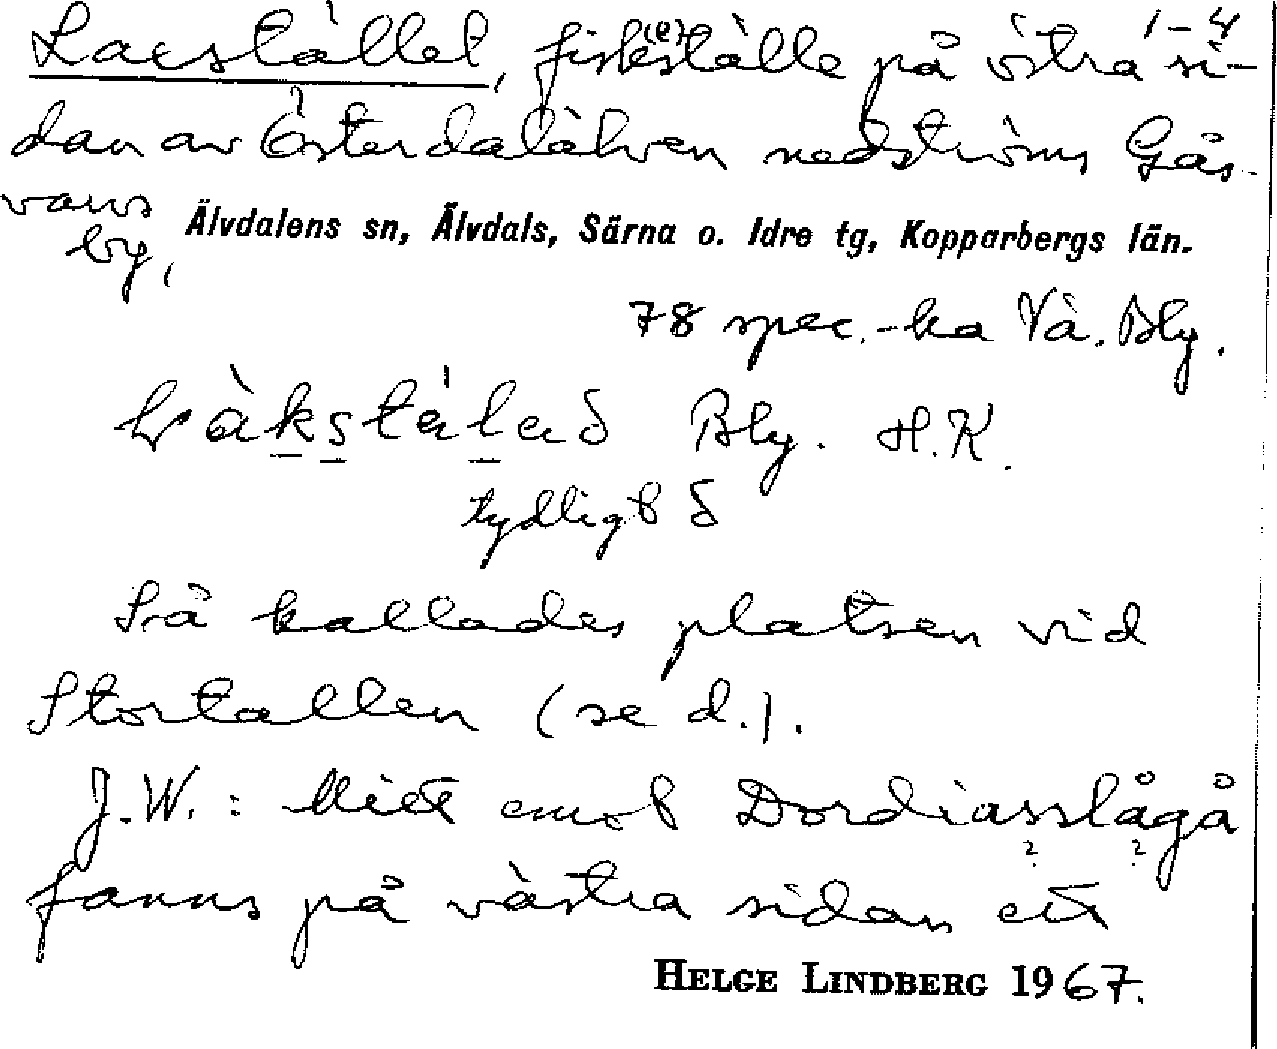 Laxstället, fisk(e)ställe på östra si- 1-4
dan av Österdalälven nedströms Gås-
varvs
by, Älvdalens sn, Älvdals, Särna o. Idre tg, Kopparbergs län.
78 spec.-ka Vä. Bly.
Bly. H.K.
tydligt δ
Så kallades platsen vid
Stortallen (se d.).
J.W.: Mitt emot Dordiasslågå
? ?
fanns på västra sidan ett
HELGE LINDBERG 1967.